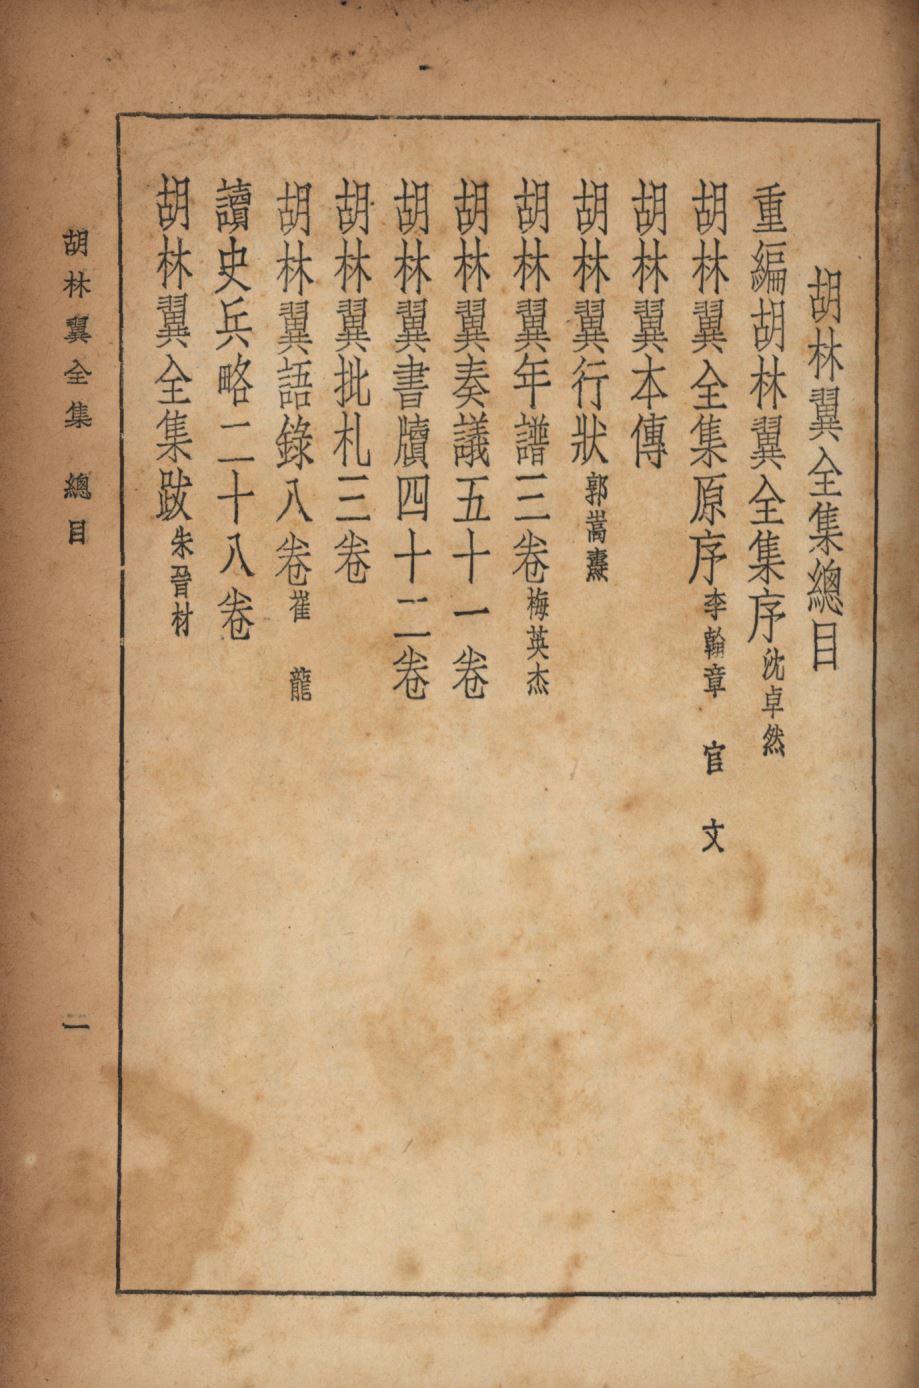 胡林翼全集總目
重編胡林翼全集序 沈卓然
胡林翼全集原序 李翰章 官文
胡林翼本傳
胡林翼行狀 郭嵩燾
胡林翼年譜三卷 梅英杰
胡林翼奏議五十一卷
胡林翼書牘四十二卷
胡林翼批札三卷
胡林翼語錄八卷 崔龍
讀史兵略二十八卷
胡林翼全集跋 朱晉材
胡林翼全集 總目
二